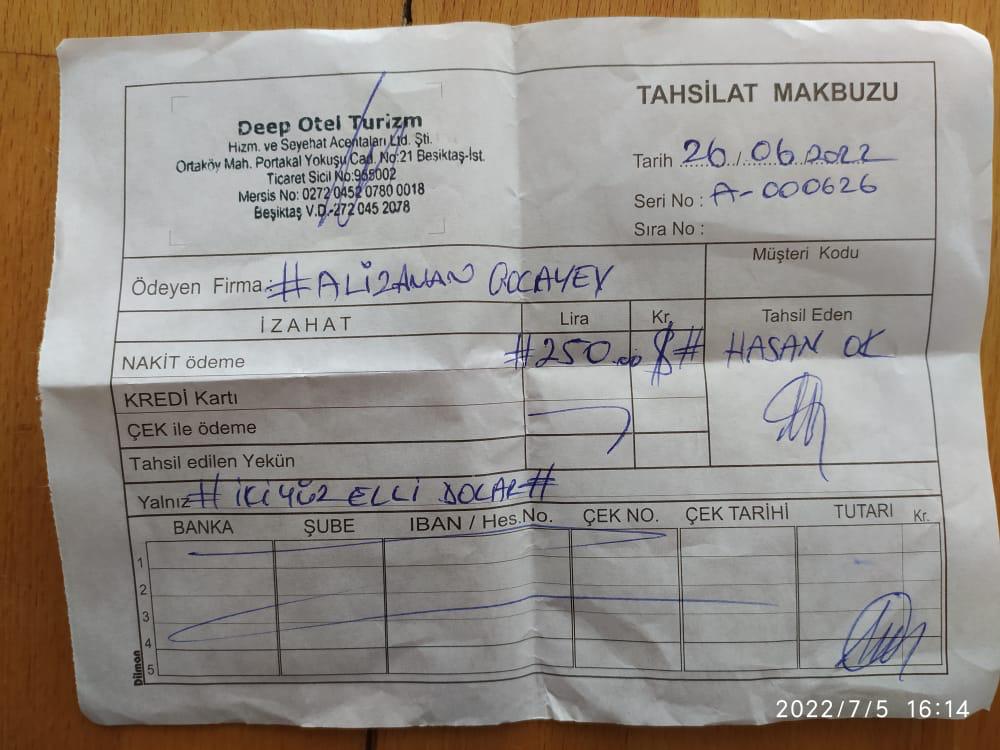 Deep Otel Turizm
Hizm. ve Seyehat Acentaları Ltd. Şti.
Ortaköy Mah. Portakal Yokuşu Cad. No:21 Beşiktaş-İst.
Ticaret Sicil No:965002
Mersis No: 0272 0452 0780 0018
Beşiktaş V.D.-272 045 2078
TAHSİLAT MAKBUZU
Tarih 26/06.2022
Seri No : A-000626
Sıra No :
Müşteri Kodu
Ödeyen Firma: #ALİZAMAN QOCAYEV
İZAHAT Lira Kr. Tahsil Eden
NAKİT ödeme #250.00 $# HASAN OK
KREDİ Kartı
ÇEK ile ödeme
Tahsil edilen Yekün
Yalnız # İKİYÜZ ELLİ DOLAR#
BANKA ŞUBE IBAN / Hes.No. ÇEK NO. ÇEK TARİHİ TUTARI Kr.
1
2
3
4
5
Dilman
2022/7/5 16:14